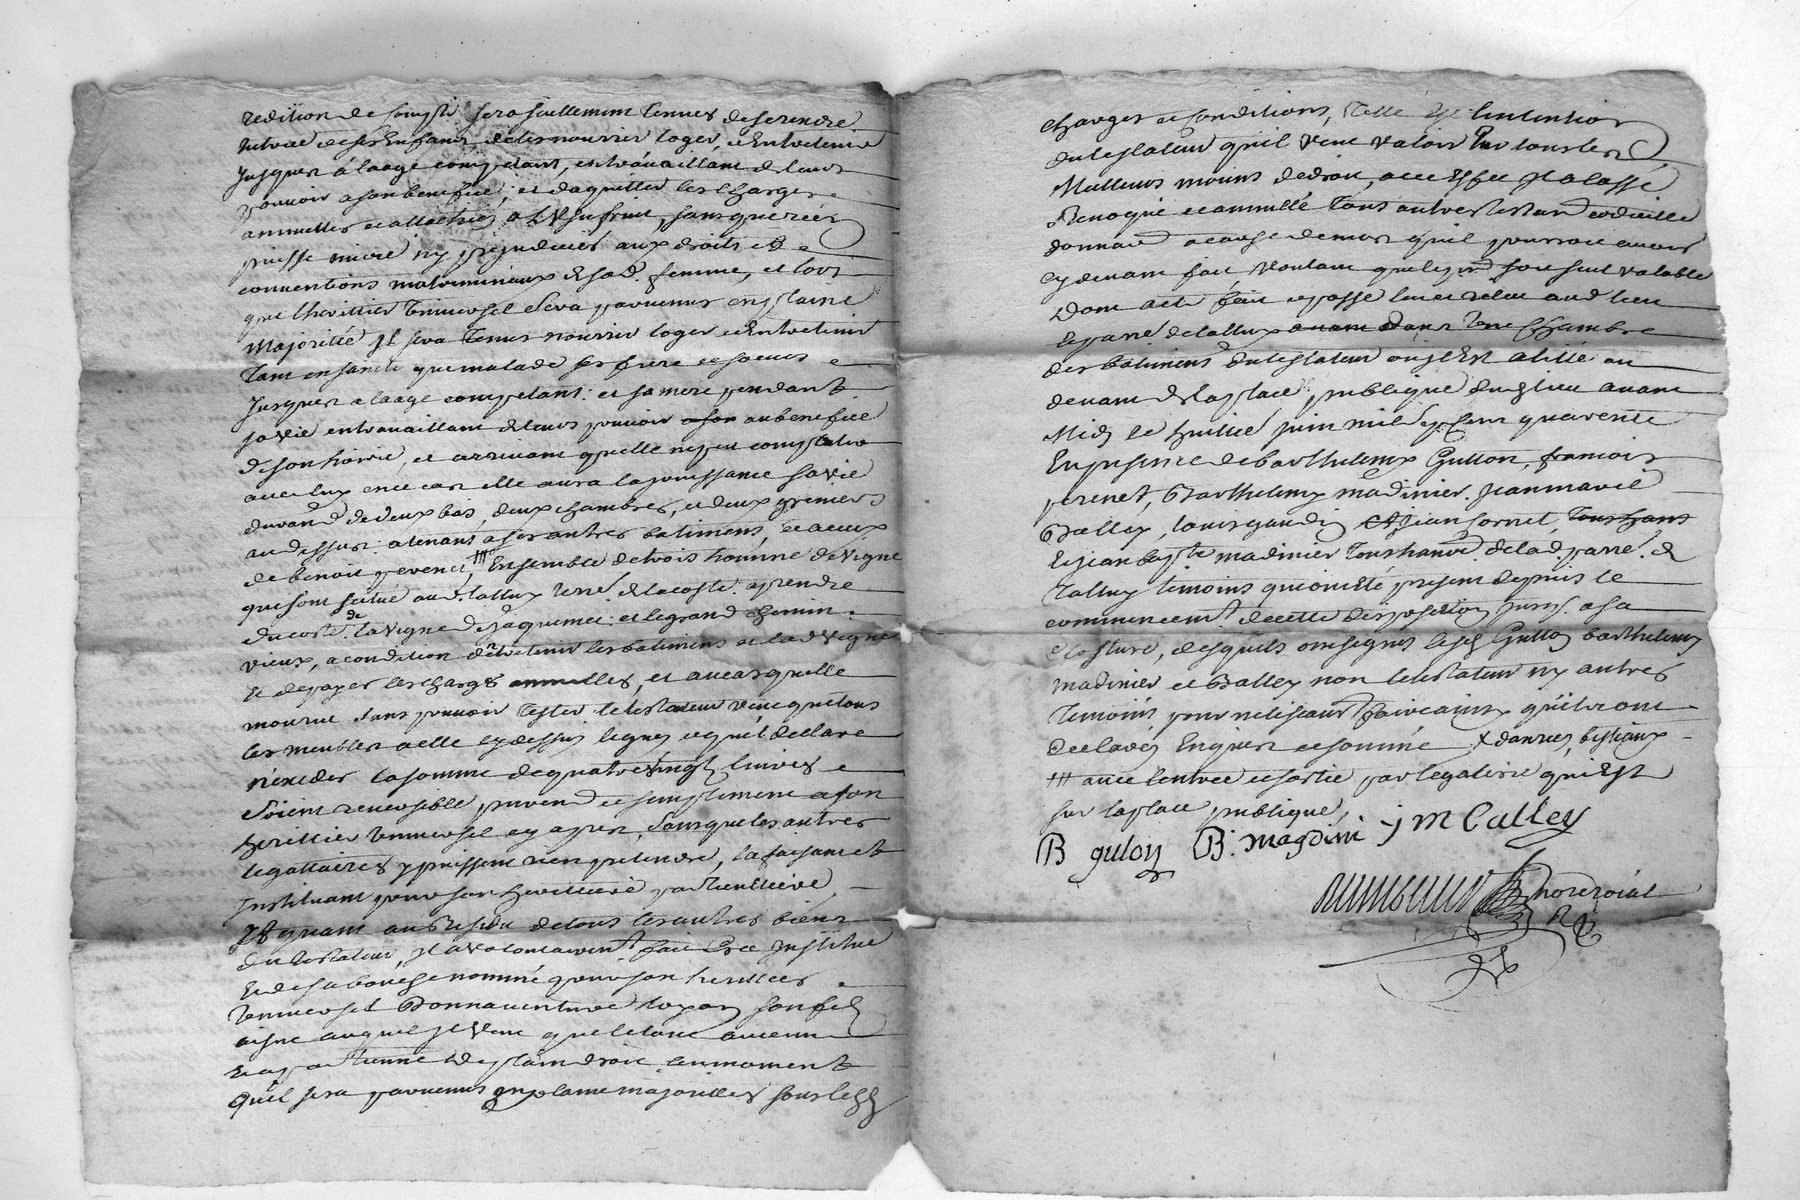 redition de compte sera seullement tenues de se rendre
jusques à laage competant, en travaillant de leurs
pouvoir a son benefice, et daquitter les charges
annuelles et attachées a l'usufruit, sans que rien
puisse nuire ny prejudicier aux droits et
conventions matrimoniaux de sad. femme, et lors
que lheritier universel sera parvenus en plaine
Majorité Jl sera tenus nourrir loger et Entretenir
tant en santé que malade ses frere et soeurs
Jusques a laage competant: et sa mere pendant
sa vie en travaillant de leurs pouvoir au benefice
de son hoirie, et arrivant quelle ne peu compatir
avec luy en ce cas elle aura la jouissance sa vie
durand de deux bas, deux chambres, et deux greniers
au dessus: atenans a ses autres batiments, et a ceux
de benoit perenet, ### Ensemble de trois homme de vigne
que sont scitué aud. talluy terre de la coste. a prendre
du costé de la vigne de Jaquemet: et le grand chemin
vieux, a condition dentretenir les batimens et lad. vigne
et de payer les charges annuelles, et au cas quelle
mourut sans pouvoir tester le testateur veut que tous
les meubles a elle cy dessus legués et quil declare
nexceder la somme de quatre vingt livres
soient reversible purem.t et simplement a son
herittier universel cy apres, sans que les autres
legattaires y puissent rien pretendre, la faisant et
Instituant pour son herittiere particuliere
Et quant au Residu de tous les autres biens
du testateur, Jl a volontairem.t fait Cree Institue
Et de sa bouche nommé pour son herittier
universel Bonnaventure son fils
aisne auquel Jl veut que le tout avienne
Et apartienne de plain droit au moment
Quil sera parvenus en plaine majorittés sous les
charges et conditions, telle est lintention
du testateur quil veut valoir par tous les
Meilleurs moiens de droit, a cet Effet Jl a cassé
Revoqué et annullé tous autres testam.t codicille
donnaon a cause de mort quil pourroit avoir
cy devant fait, voulant que le pnt soit seul valable
Dont acte fait et passé leu et releu aud. lieu
et parre de talluy avant dans une Chambre
des batimens du testateur ou Jl Est alitté au
devant de la place publique dud lieu avant
Midy le huitié juin mil sept cent quarente
En presence de barthelemy Gutton, francois
perenet, Barthelemy madinier, Jean marie
Balley, louis gaudin Et Jean Fornel, tous hans
Et Jean bap.te madinier tous hans de lad. parr.e de
Talluy temoins qui ont Eté present depuis le
commencem.t de cette disposition jusqs. a sa
Closture, desquels ont signes lesd. Gutton barthelemy
madinier et Balley non le testateur ny autres
temoins pour ne scavoir faire ainsy quils ont
declarés Enquis et sommé X danrées, bestiaux
### avec lentrée et sortie par le qui Est
sur la place publique,
B guton B. magdini j m Balley